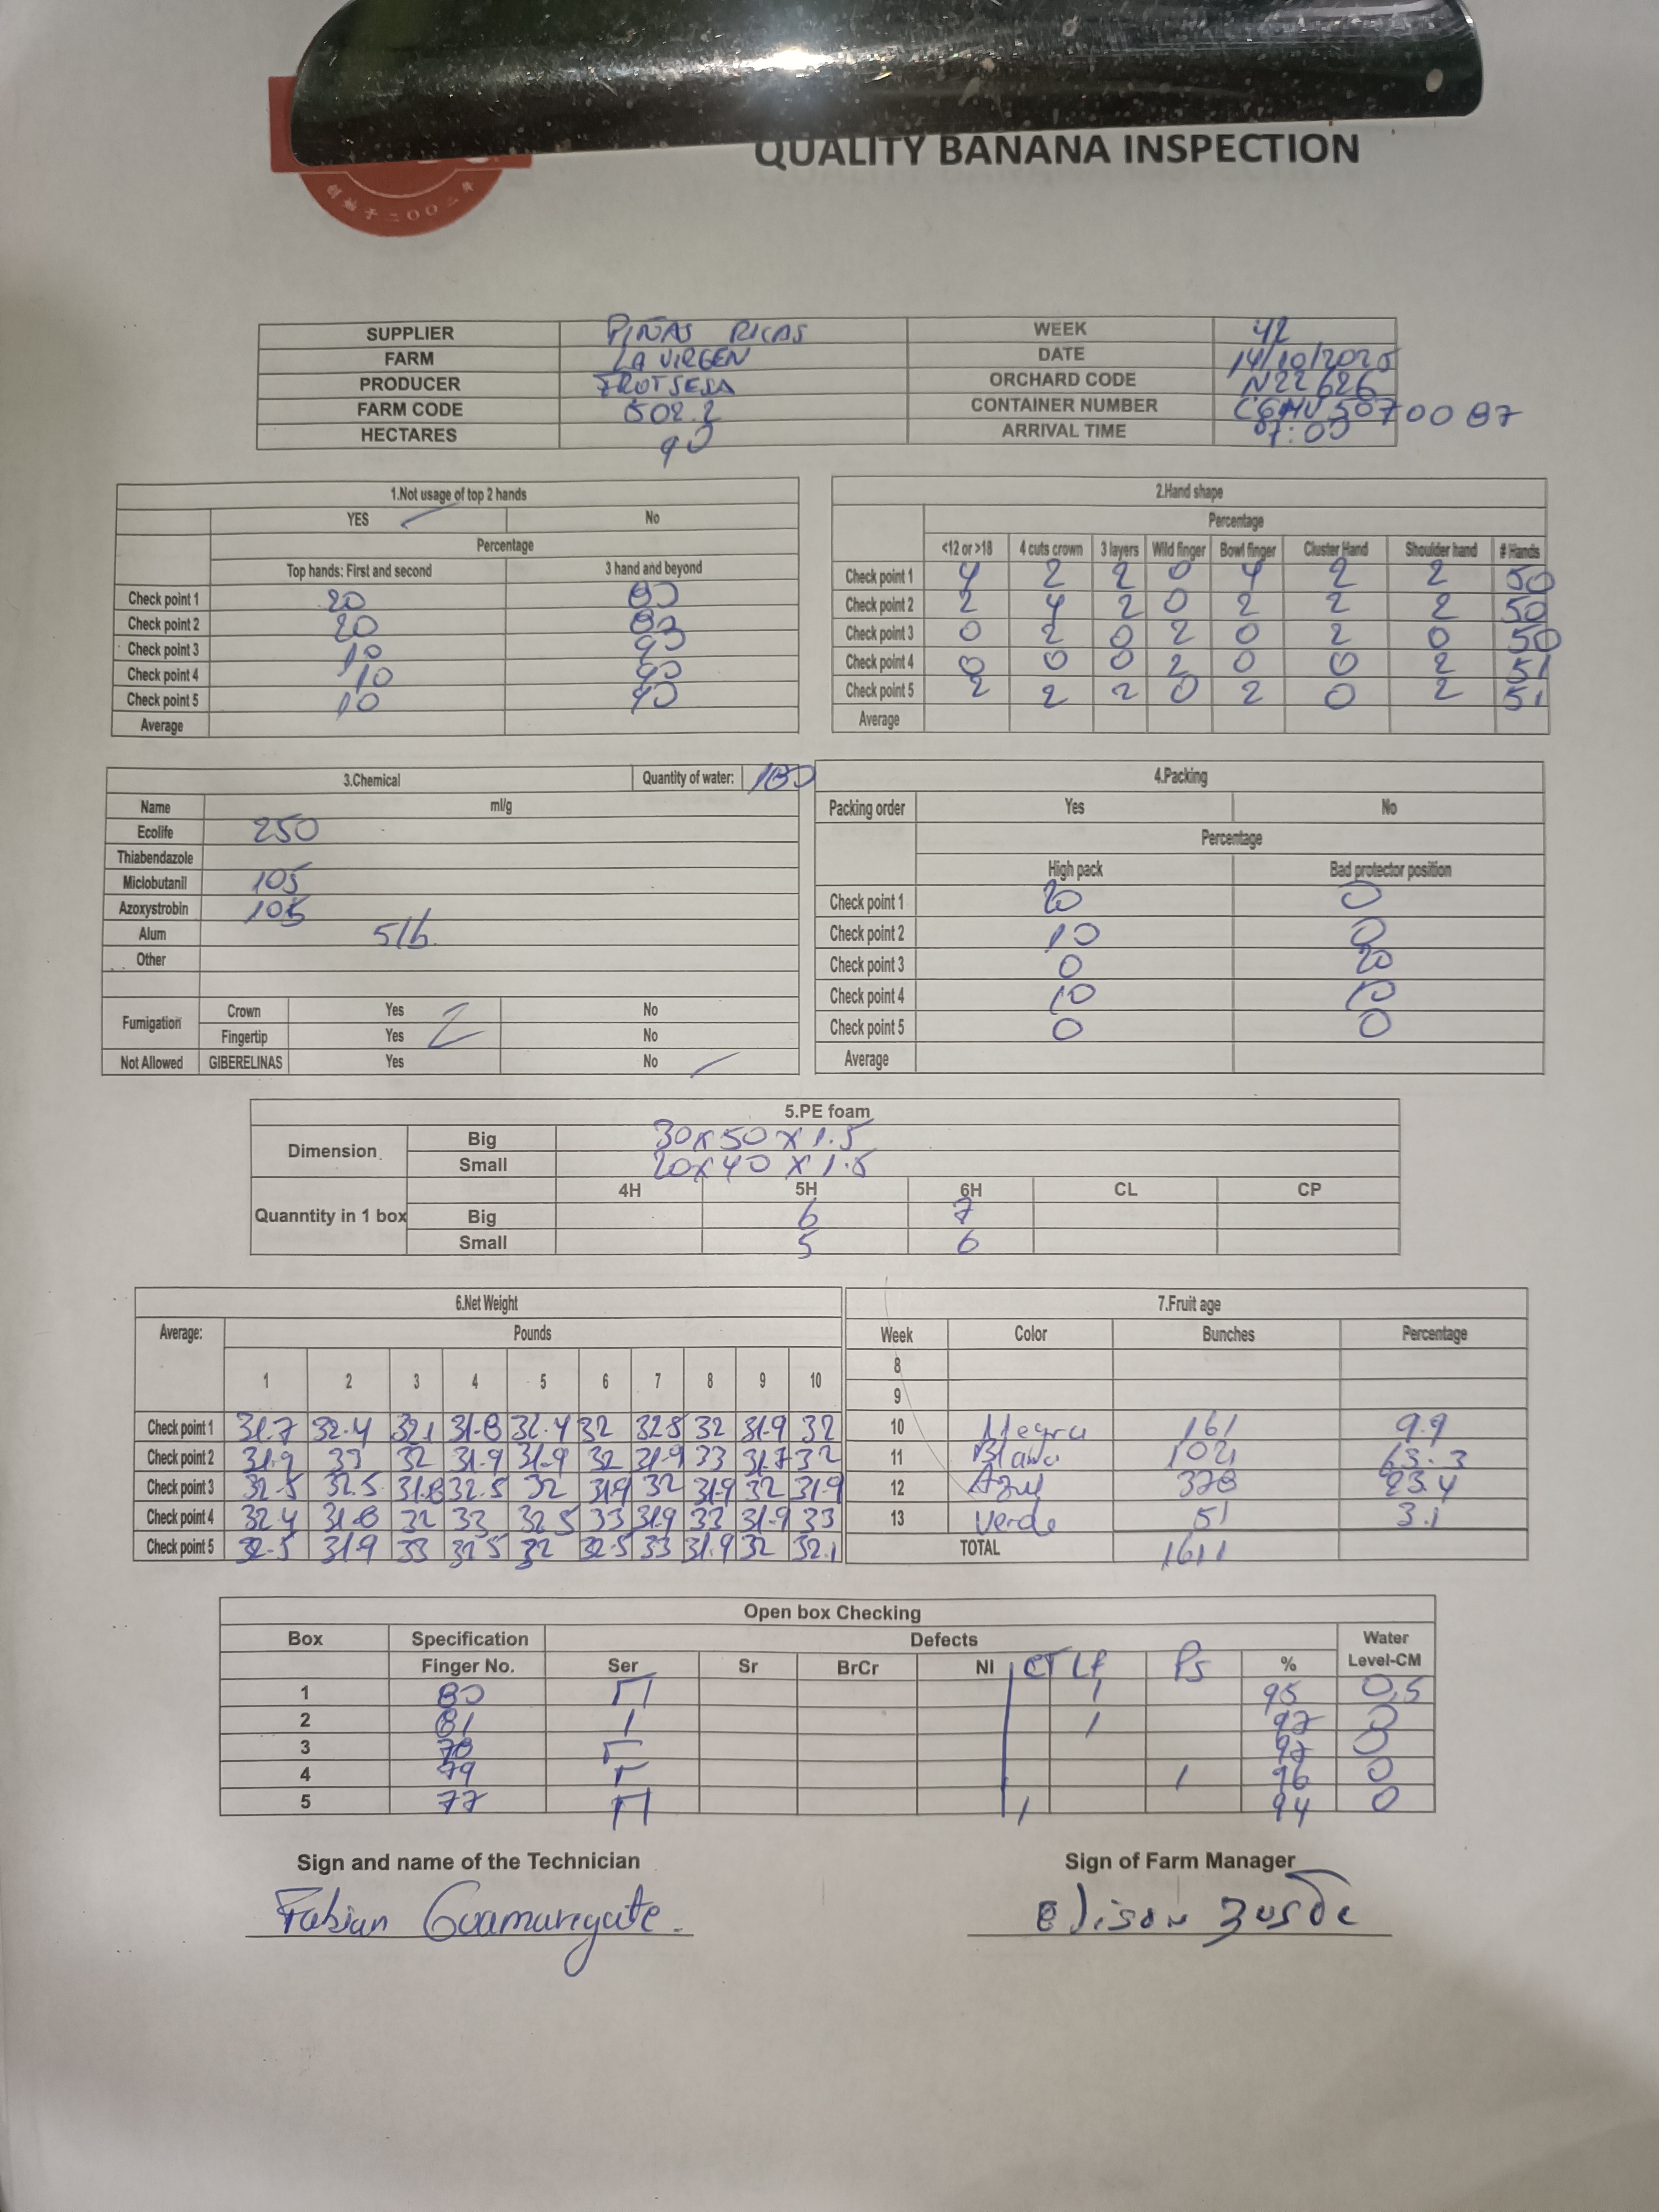 创始于二〇〇二年
QUALITY BANANA INSPECTION
SUPPLIER PIÑAS RICAS WEEK 42
FARM LA VIRGEN DATE 14/10/2025
PRODUCER FRUTSESA ORCHARD CODE N22626
FARM CODE 502.2 CONTAINER NUMBER 5070087
HECTARES 90 ARRIVAL TIME 07:00
1.Not usage of top 2 hands
YES ✓ No
Percentage
Top hands: First and second 3 hand and beyond
Check point 1 20 80
Check point 2 20 80
Check point 3 10 90
Check point 4 10 90
Check point 5 10 90
Average
2.Hand shape
Percentage
<12 or >18 4 cuts crown 3 layers Wild finger Bowl finger Cluster Hand Shoulder hand # Hands
Check point 1 4 2 2 0 4 2 2 50
Check point 2 2 4 2 0 2 2 2 50
Check point 3 0 2 0 2 0 2 0 50
Check point 4 0 0 0 2 0 0 2 51
Check point 5 2 2 2 0 2 0 2 51
Average
3.Chemical Quantity of water: 180
Name ml/g
Ecolife 250
Thiabendazole
Miclobutanil 105
Azoxystrobin 105
Alum 5lb.
Other
Fumigation Crown Yes No
Fingertip Yes No
Not Allowed GIBERELINAS Yes No ✓
4.Packing
Packing order Yes No
Percentage
High pack Bad protector position
Check point 1 20 0
Check point 2 10 0
Check point 3 0 20
Check point 4 10 10
Check point 5 0 0
Average
5.PE foam
Dimension Big 30x50x1.5
Small 20x40x1.5
4H 5H 6H CL CP
Quanntity in 1 box Big 6 7
Small 5 6
6.Net Weight
Average: Pounds
1 2 3 4 5 6 7 8 9 10
Check point 1 31.7 32.4 32.1 31.8 32.4 32 32.5 32 31.9 32
Check point 2 31.9 33 32 31.9 31.9 32 31.9 33 31.7 32
Check point 3 32.5 32.5 31.8 32.5 32 31.9 32 31.9 32 31.9
Check point 4 32.4 31.8 32 33 32.5 33 31.9 33 31.9 33
Check point 5 32.5 31.9 33 32.5 32 32.5 33 31.9 32 32.1
7.Fruit age
Week Color Bunches Percentage
8
9
10 Negra 161 9.9
11 Blanco 1021 63.3
12 Azul 378 23.4
13 Verde 51 3.1
TOTAL 1611
Open box Checking
Box Specification Defects Water
Finger No. Ser Sr BrCr NI CT Lf Ps % Level-CM
1 80 1 95 0,5
2 81 1 1 97 0
3 78 97 0
4 79 1 96 0
5 77 1 94 0
Sign and name of the Technician Sign of Farm Manager
Fabian